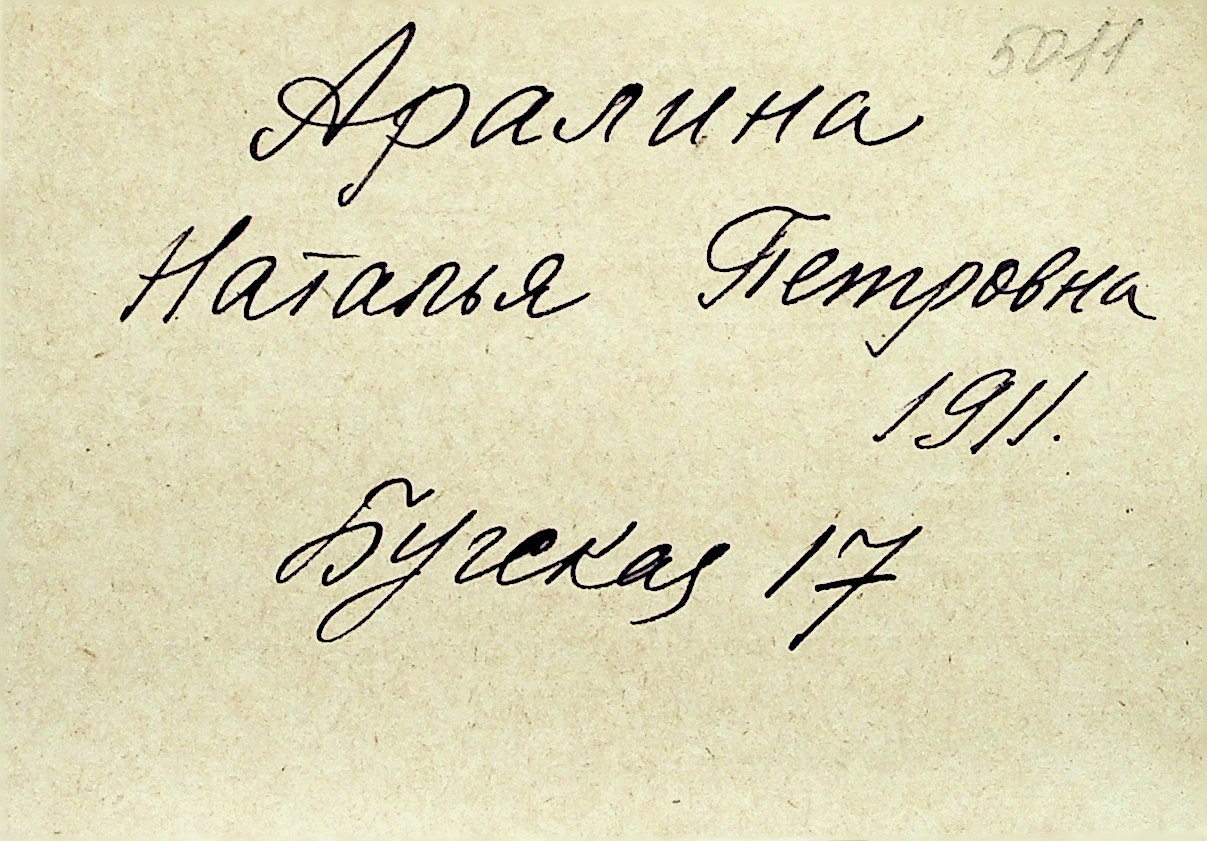 5011
Аралина
Наталья Петровна
1911.
Бугская 17